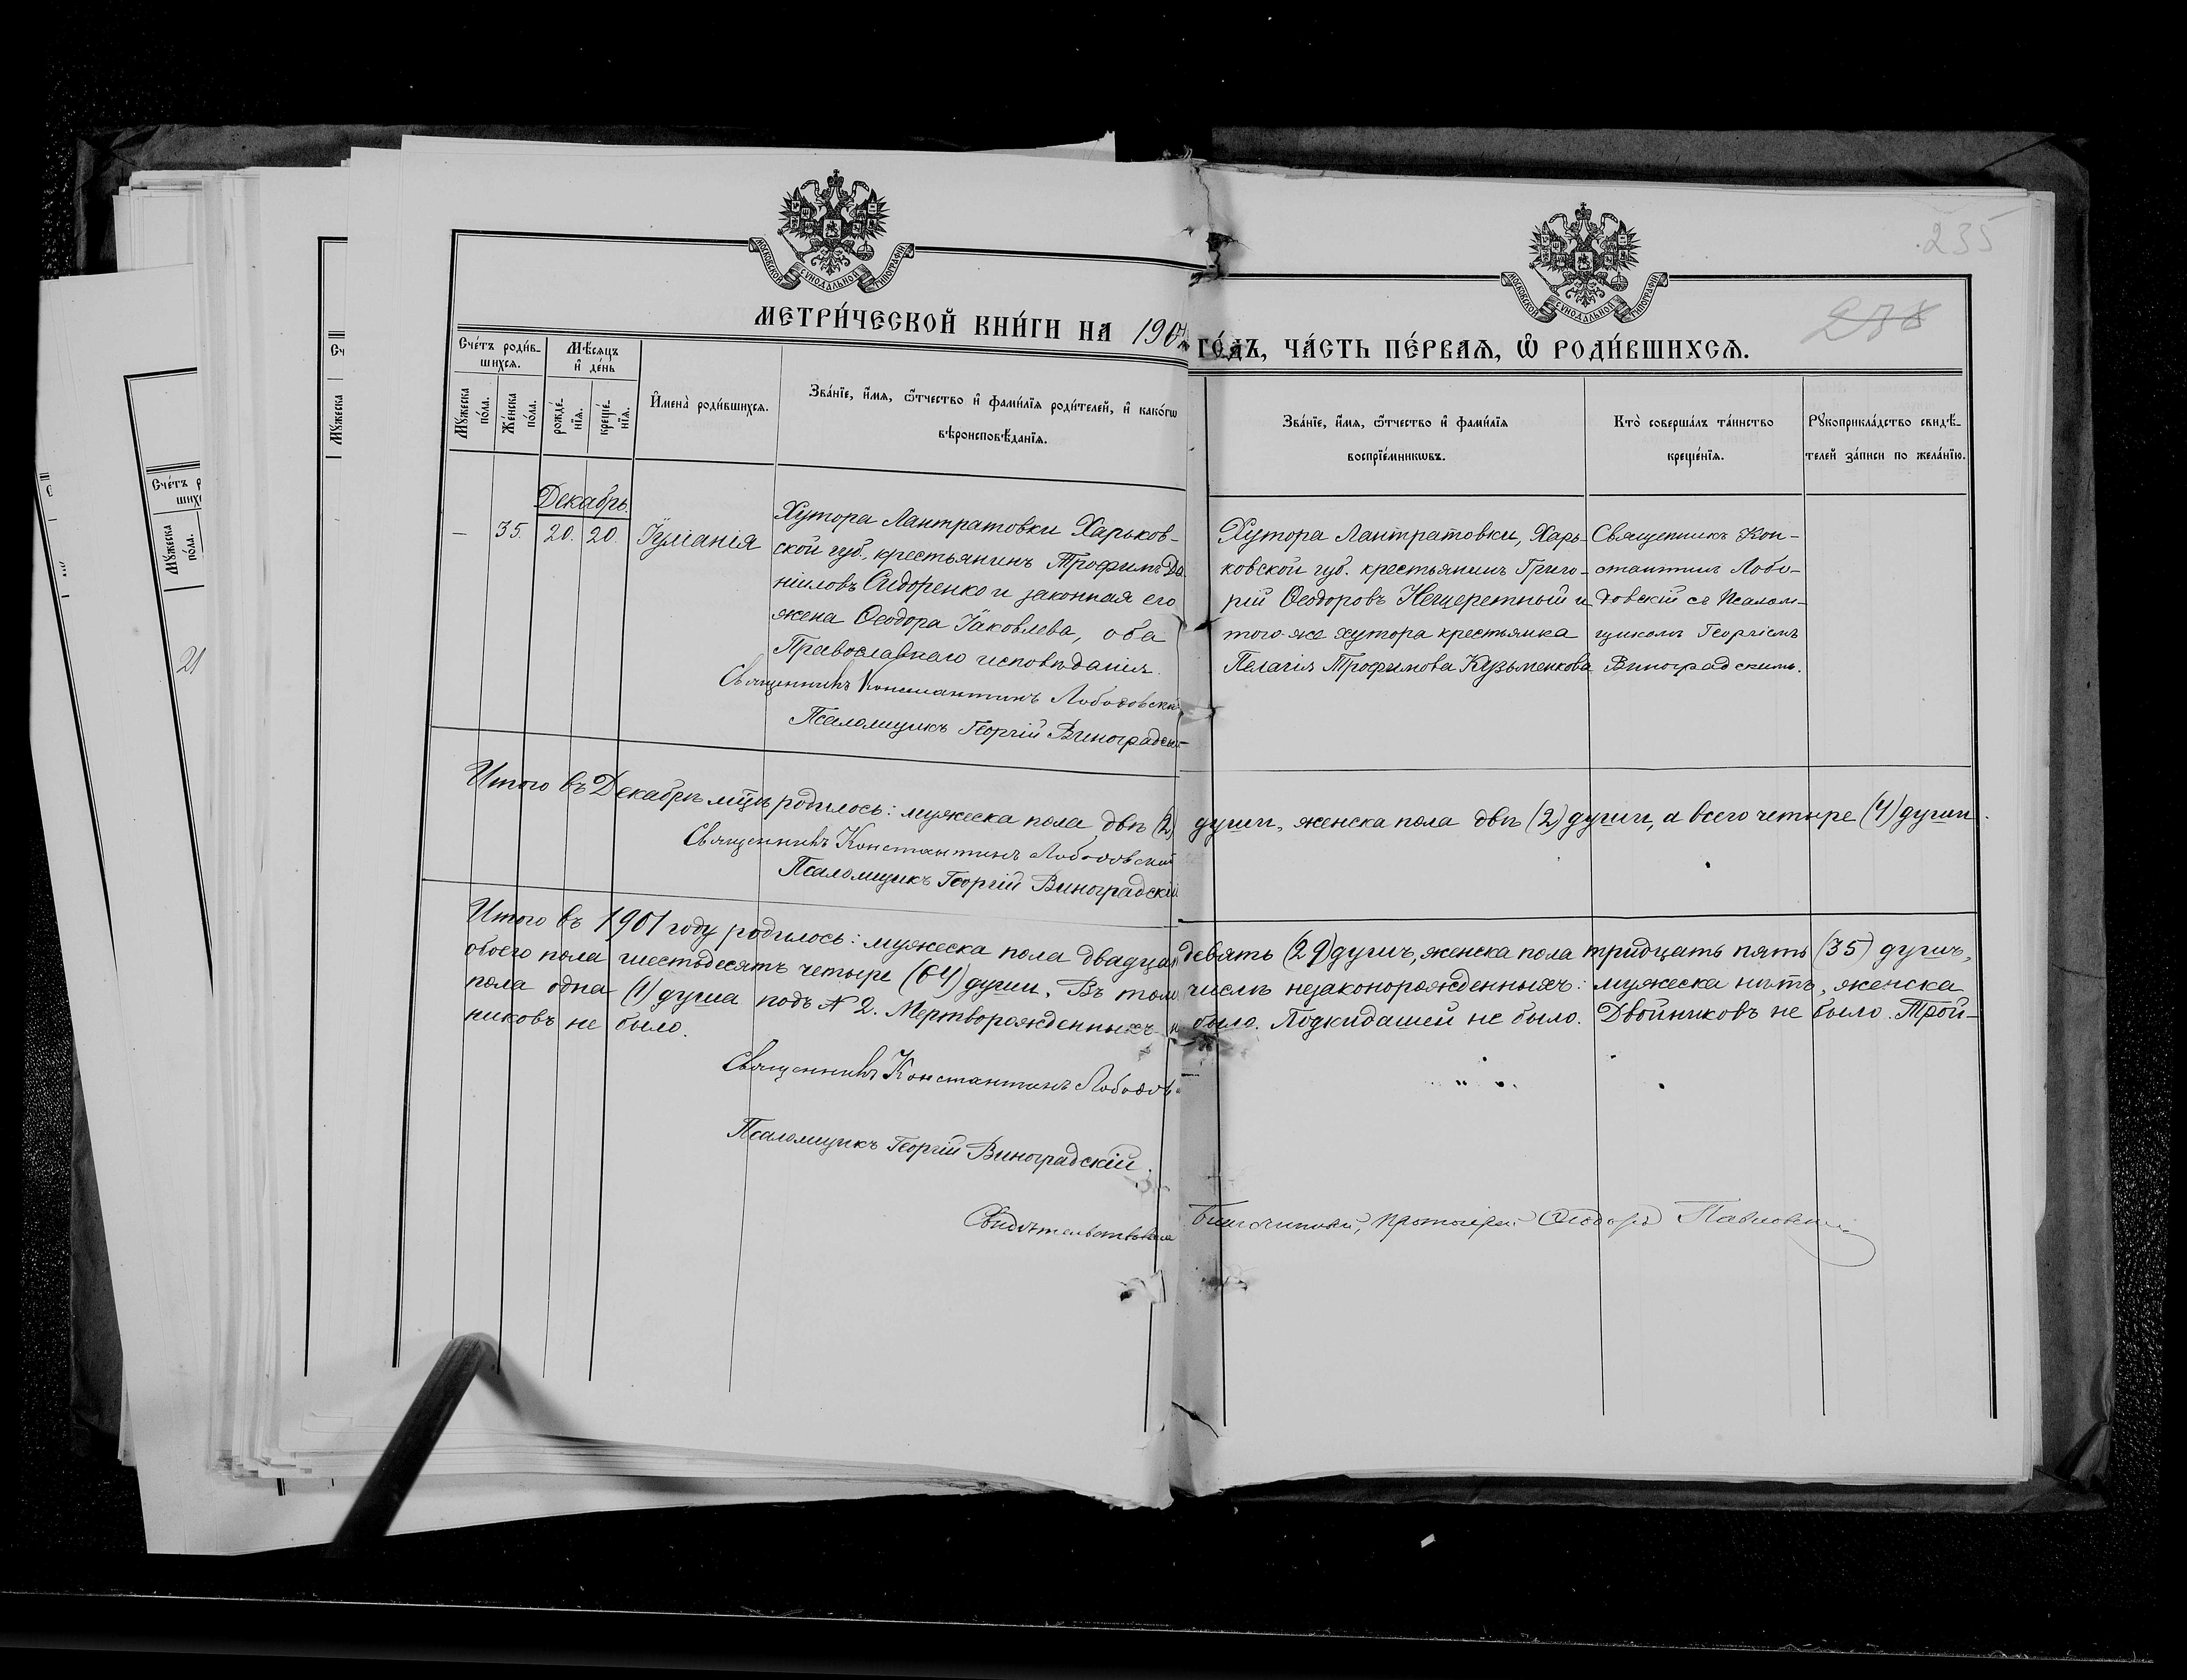 МОСКОВСКОЙ СѴНОДАЛЬНОЙ ТИПОГРАФІИ
МОСКОВСКОЙ СѴНОДАЛЬНОЙ ТИПОГРАФІИ
235
МЕТРИ́ЧЕСКОЙ КНИ́ГИ НА 1901
ГО́ДЪ, ЧА́СТЬ ПЕ́РВАЯ, Ѡ҆ РОДИ́ВШИХСЯ.
Сче́тъ роди́в-
шихся.
Мѣ́сяцъ
и҆ де́нь
Мꙋ́жеска
по́ла.
Же́нска
по́ла.
рожде́-
нїя.
креще́-
нїя.
И҆мена̀ роди́вшихся.
Зва́нїе, и҆́мя, ѻ҆́тчество и҆ фами́лїя роди́телей, и҆ како́гѡ
вѣроисповѣ́данїя.
Зва́нїе, и҆́мя, ѻ҆́тчество и҆ фами́лїя
воспрїе́мникѡвъ.
Кто̀ соверша́лъ та́инство
креще́нїя.
Рꙋкоприкла́дство свидѣ́-
телей за́писи по жела́нїю.
Декабрь.
— 35. 20. 20. Іуліанія
Хутора Лантратовки Харьков-
ской губ., крестьянинъ Трофимъ Да-
ніиловъ Сидоренко и законная его
жена Ѳеодора Іаковлева, оба
Православнаго исповѣданія.
Священникъ Константинъ Лободовскій
Псаломщикъ Георгій Виноградскій
Хутора Лантратовки, Харь-
ковской губ. крестьянинъ Григо-
рій Ѳеодоровъ Нещеретный и
того-же хутора крестьянка
Пелагія Трофимова Кузьменкова
Священникъ Кон-
стантинъ Лобо-
довскій съ Псалом-
щикомъ Георгіемъ
Виноградскимъ.
Итого въ Декабрѣ мцѣ родилось: мужеска пола двѣ (2) души, женска пола двѣ (2) души, а всего четыре (4) души.
Священникъ Константинъ Лободовскій
Псаломщикъ Георгій Виноградскій
Итого въ 1901 году родилось: мужеска пола двадцать девять (29) душъ, женска пола тридцать пять (35) душъ,
обоего пола шестьдесятъ четыре (64) души. Въ томъ числѣ незаконорожденныхъ: мужеска нѣтъ, женска
пола одна (1) душа подъ № 2. Мертворожденныхъ н было. Подкидашей не было. Двойниковъ не было. Трой-
никовъ не было.
Священникъ Константинъ Лободов
Псаломщикъ Георгій Виноградскій.
Свидѣтельствовалъ Благочинный, Протоіерей Ѳеодоръ Павловскій
Сч
Мꙋжеска
Сче́тъ р
ших
Мꙋжеска
по́ла.
21